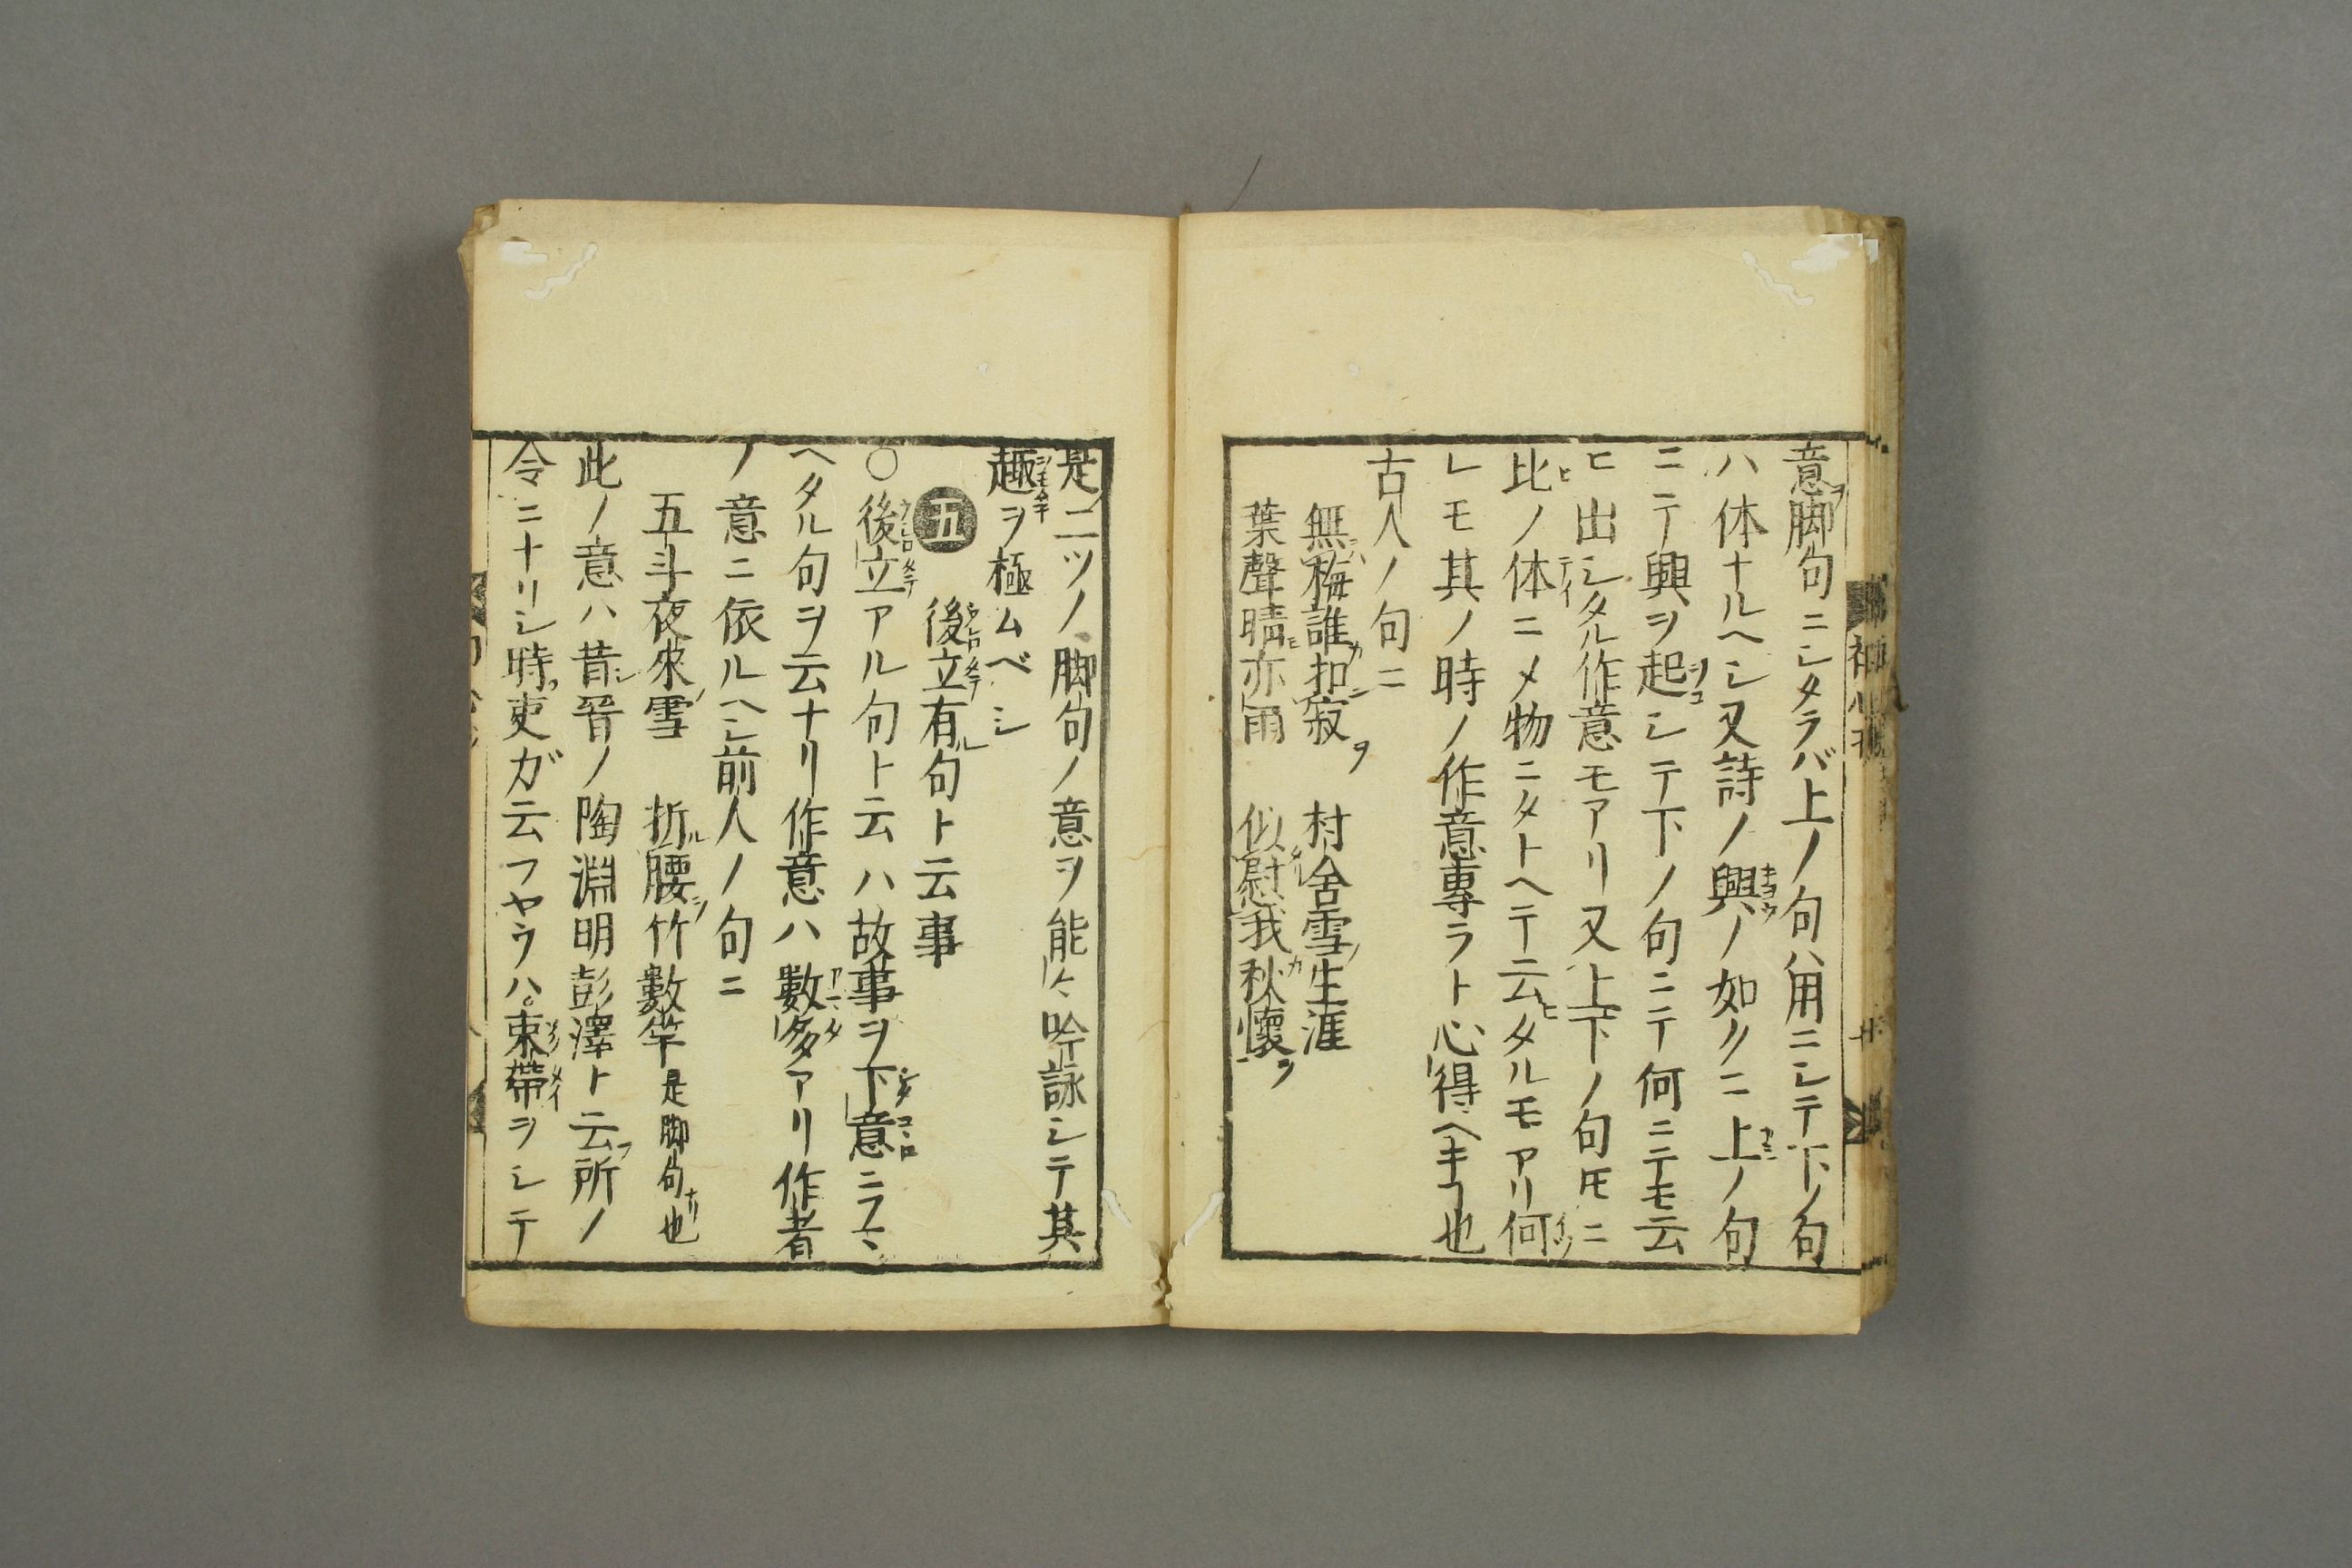 意脚句ニシタラバ上ノ句ハ用ニシテ下ノ句
ハ体ナルヘシ又詩ノ興ノ如クニ上ノ句
ニテ興ヲ起シテ下ノ句ニテ何ニテモ云
ヒ出シタル作意モアリ又上下ノ句𪜈ニ
比ノ体ニ〆物ニタトヘテ云タルモアリ何
レモ其ノ時ノ作意專ラト心得ヘキヿ也
古人ノ句ニ
無梅誰扣寂 村舍雪生涯
葉聲晴亦雨 似慰我秋懷
是二ツノ脚句ノ意ヲ能々吟詠シテ其
趣ヲ極ムベシ
五 後立有句ト云事
○後立アル句ト云ハ故事ヲ下意ニフミ
ヘタル句ヲ云ナリ作意ハ數多アリ作者
ノ意ニ依ルヘシ前人ノ句ニ
五斗夜來雪 折腰竹數竿 是脚句也
此ノ意ハ昔晉ノ陶淵明彭澤ト云所ノ
令ニナリシ時吏ガ云フヤウハ束帶ヲシテ